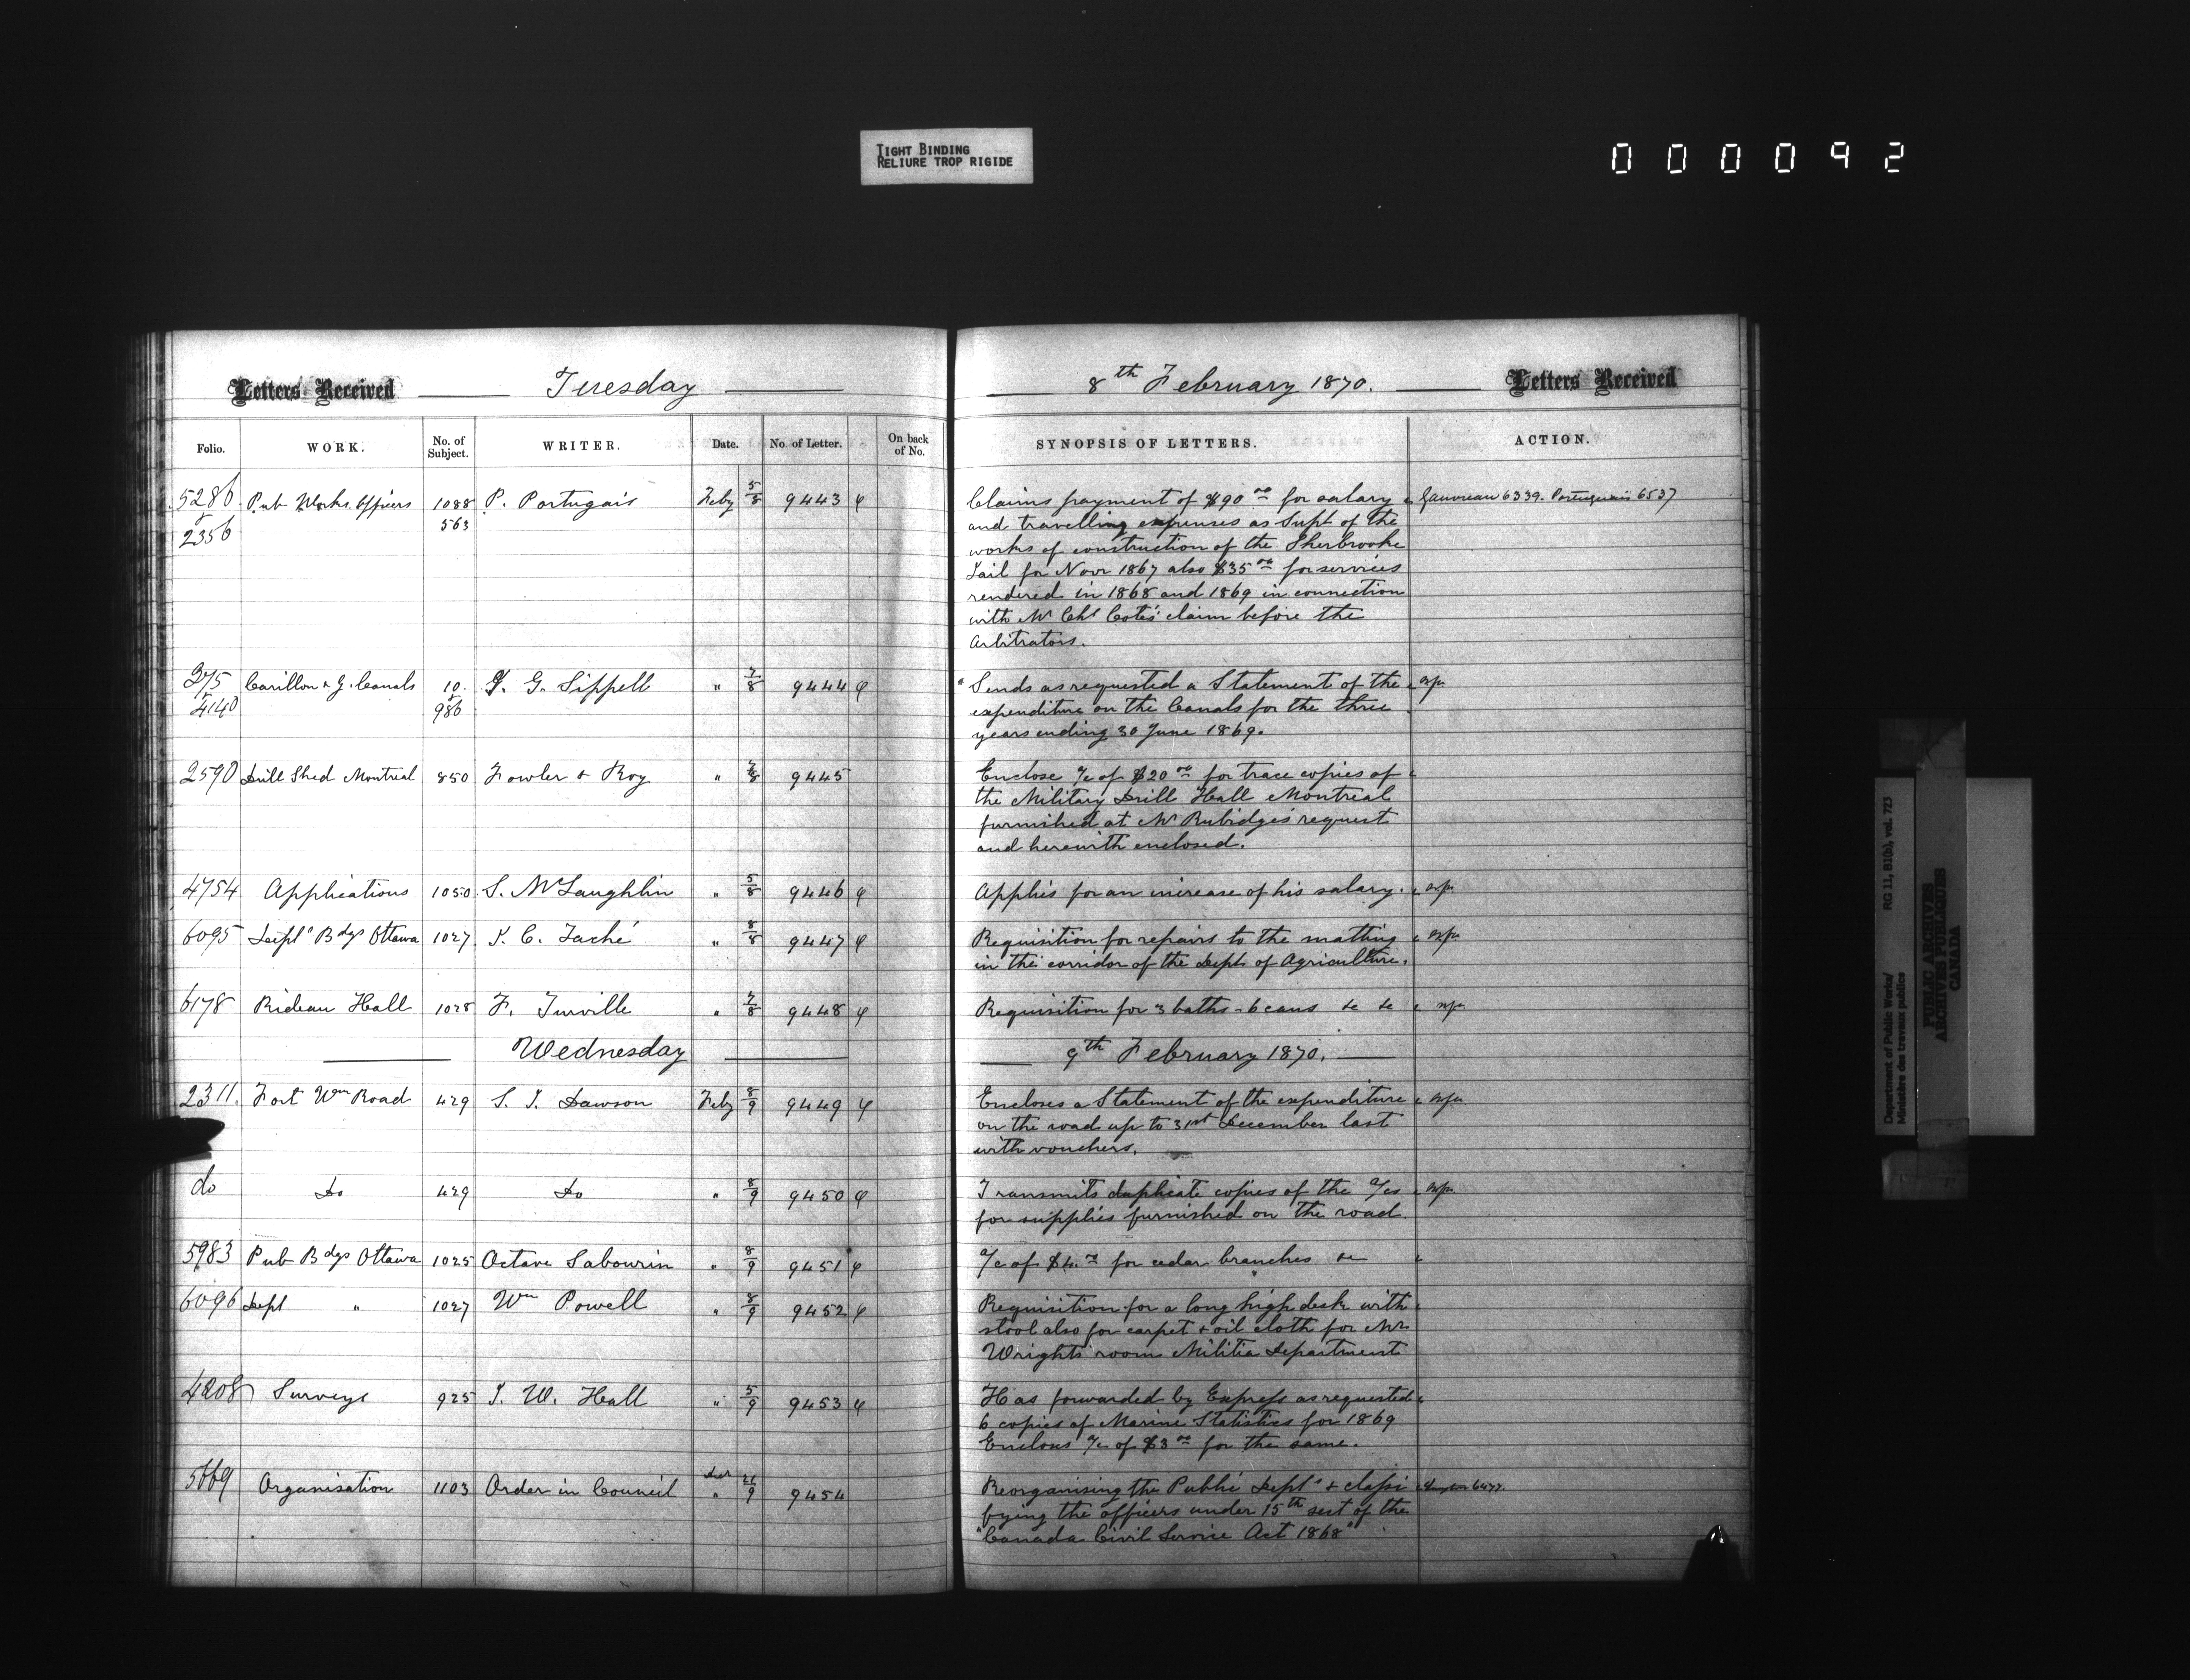 TIGHT BINDING
RELIURE TROP RIGIDE
000092
Letters Received Tuesday 8th February 1870. Letters Received
Folio. WORK. No. of Subject. WRITER. Date. No. of Letter. On back of No. SYNOPSIS OF LETTERS. ACTION.
5286 Pub Works Officers 1088 P. Portugais Feby 5/8 9443 Claims payment of $90 00 for salary Gauvreau 6339. Portuguais 6537
2356 563 and travelling expenses as Supt of the
works of construction of the Sherbrooke
Jail for Novr 1867 also $35 00 for services
rendered in 1868 and 1869 in connection
with Mr Chs Cotés claim before the
Arbitrators.
375 Carillon & G. Canals 10 J. G. Sippell " 7/8 9444 Sends as requested a Statement of the
4140 986 expenditure on the Canals for the three
years ending 30 June 1869.
2590 Drill Shed Montreal 850 Fowler & Roy " 7/8 9445 Enclose a/c of $20 00 for trace copies of
the Military Drill Hall Montreal
furnished at Mr Rubidges request
and herewith enclosed.
4754 Applications 1050 S. McLaughlin " 5/8 9446 Applies for an increase of his salary.
6095 Deptl Bdgs Ottawa 1027 J. C. Taché " 8/8 9447 Requisition for repairs to the matting
in the corridor of the Dept of Agriculture.
6178 Rideau Hall 1028 F. Turville " 7/8 9448 Requisition for 3 baths - 6 cans &c &c
Wednesday 9th February 1870.
2311. Fort Wm Road 429 S. J. Dawson Feby 8/9 9449 Encloses a Statement of the expenditure
on the road up to 31st December last
with vouchers.
do Do 429 Do " 8/9 9450 Transmits duplicate copies of the a/cs
for supplies furnished on the road.
5983 Pub Bdgs Ottawa 1025 Octave Sabourin " 8/9 9451 a/c of $4.00 for cedar branches &c
6096 Dept " 1027 Wm Powell " 8/9 9452 Requisition for a long high desk with
stool also for carpet & oil cloth for Mr
Wrights room Militia Department
4208 Surveys 925 J. W. Hall " 5/9 9453 Has forwarded by Express as requested
6 copies of Marine Statistics for 1869
Encloses a/c of $3 00 for the same.
5669 Organisation 1103 Order in Council " 9 9454 Reorganising the Public Depts & classi
fying the officers under 15th sect of the
"Canada Civil Service Act 1868"
Department of Public Works/ RG 11, B1(b), vol. 723
Ministère des travaux publics
PUBLIC ARCHIVES
ARCHIVES PUBLIQUES
CANADA